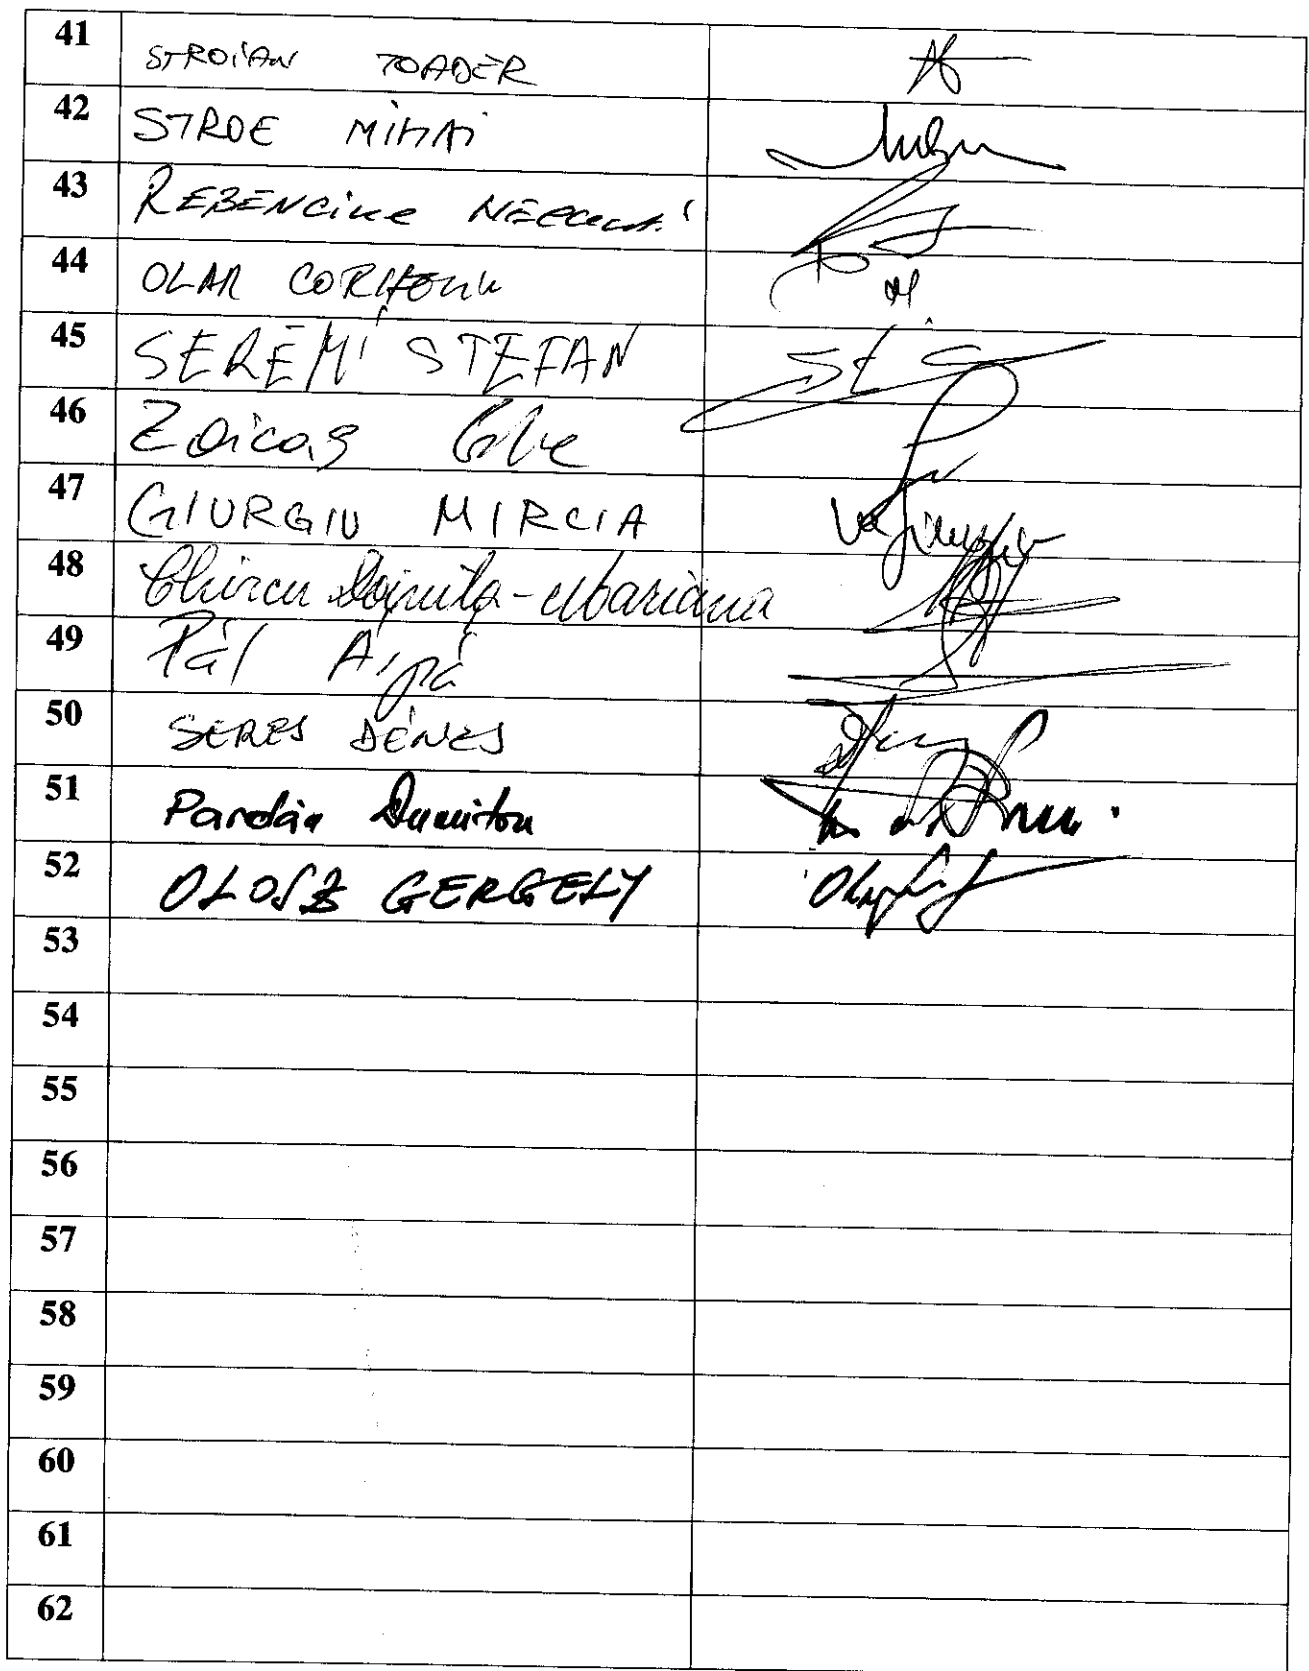 41 STROIAN TOADER
42 STROE MIHAI
43 REBENCIUC
44 OLAR CORNELIU
45 SEREMI STEFAN
46 Zoicaş Ghe
47 GIURGIU MIRCIA
48 Chircu Doiniţa-Mariana
49 Pál Árpá
50 SERES DÉNES
51 Pardău Dumitru
52 OLOSZ GERGELY
53
54
55
56
57
58
59
60
61
62